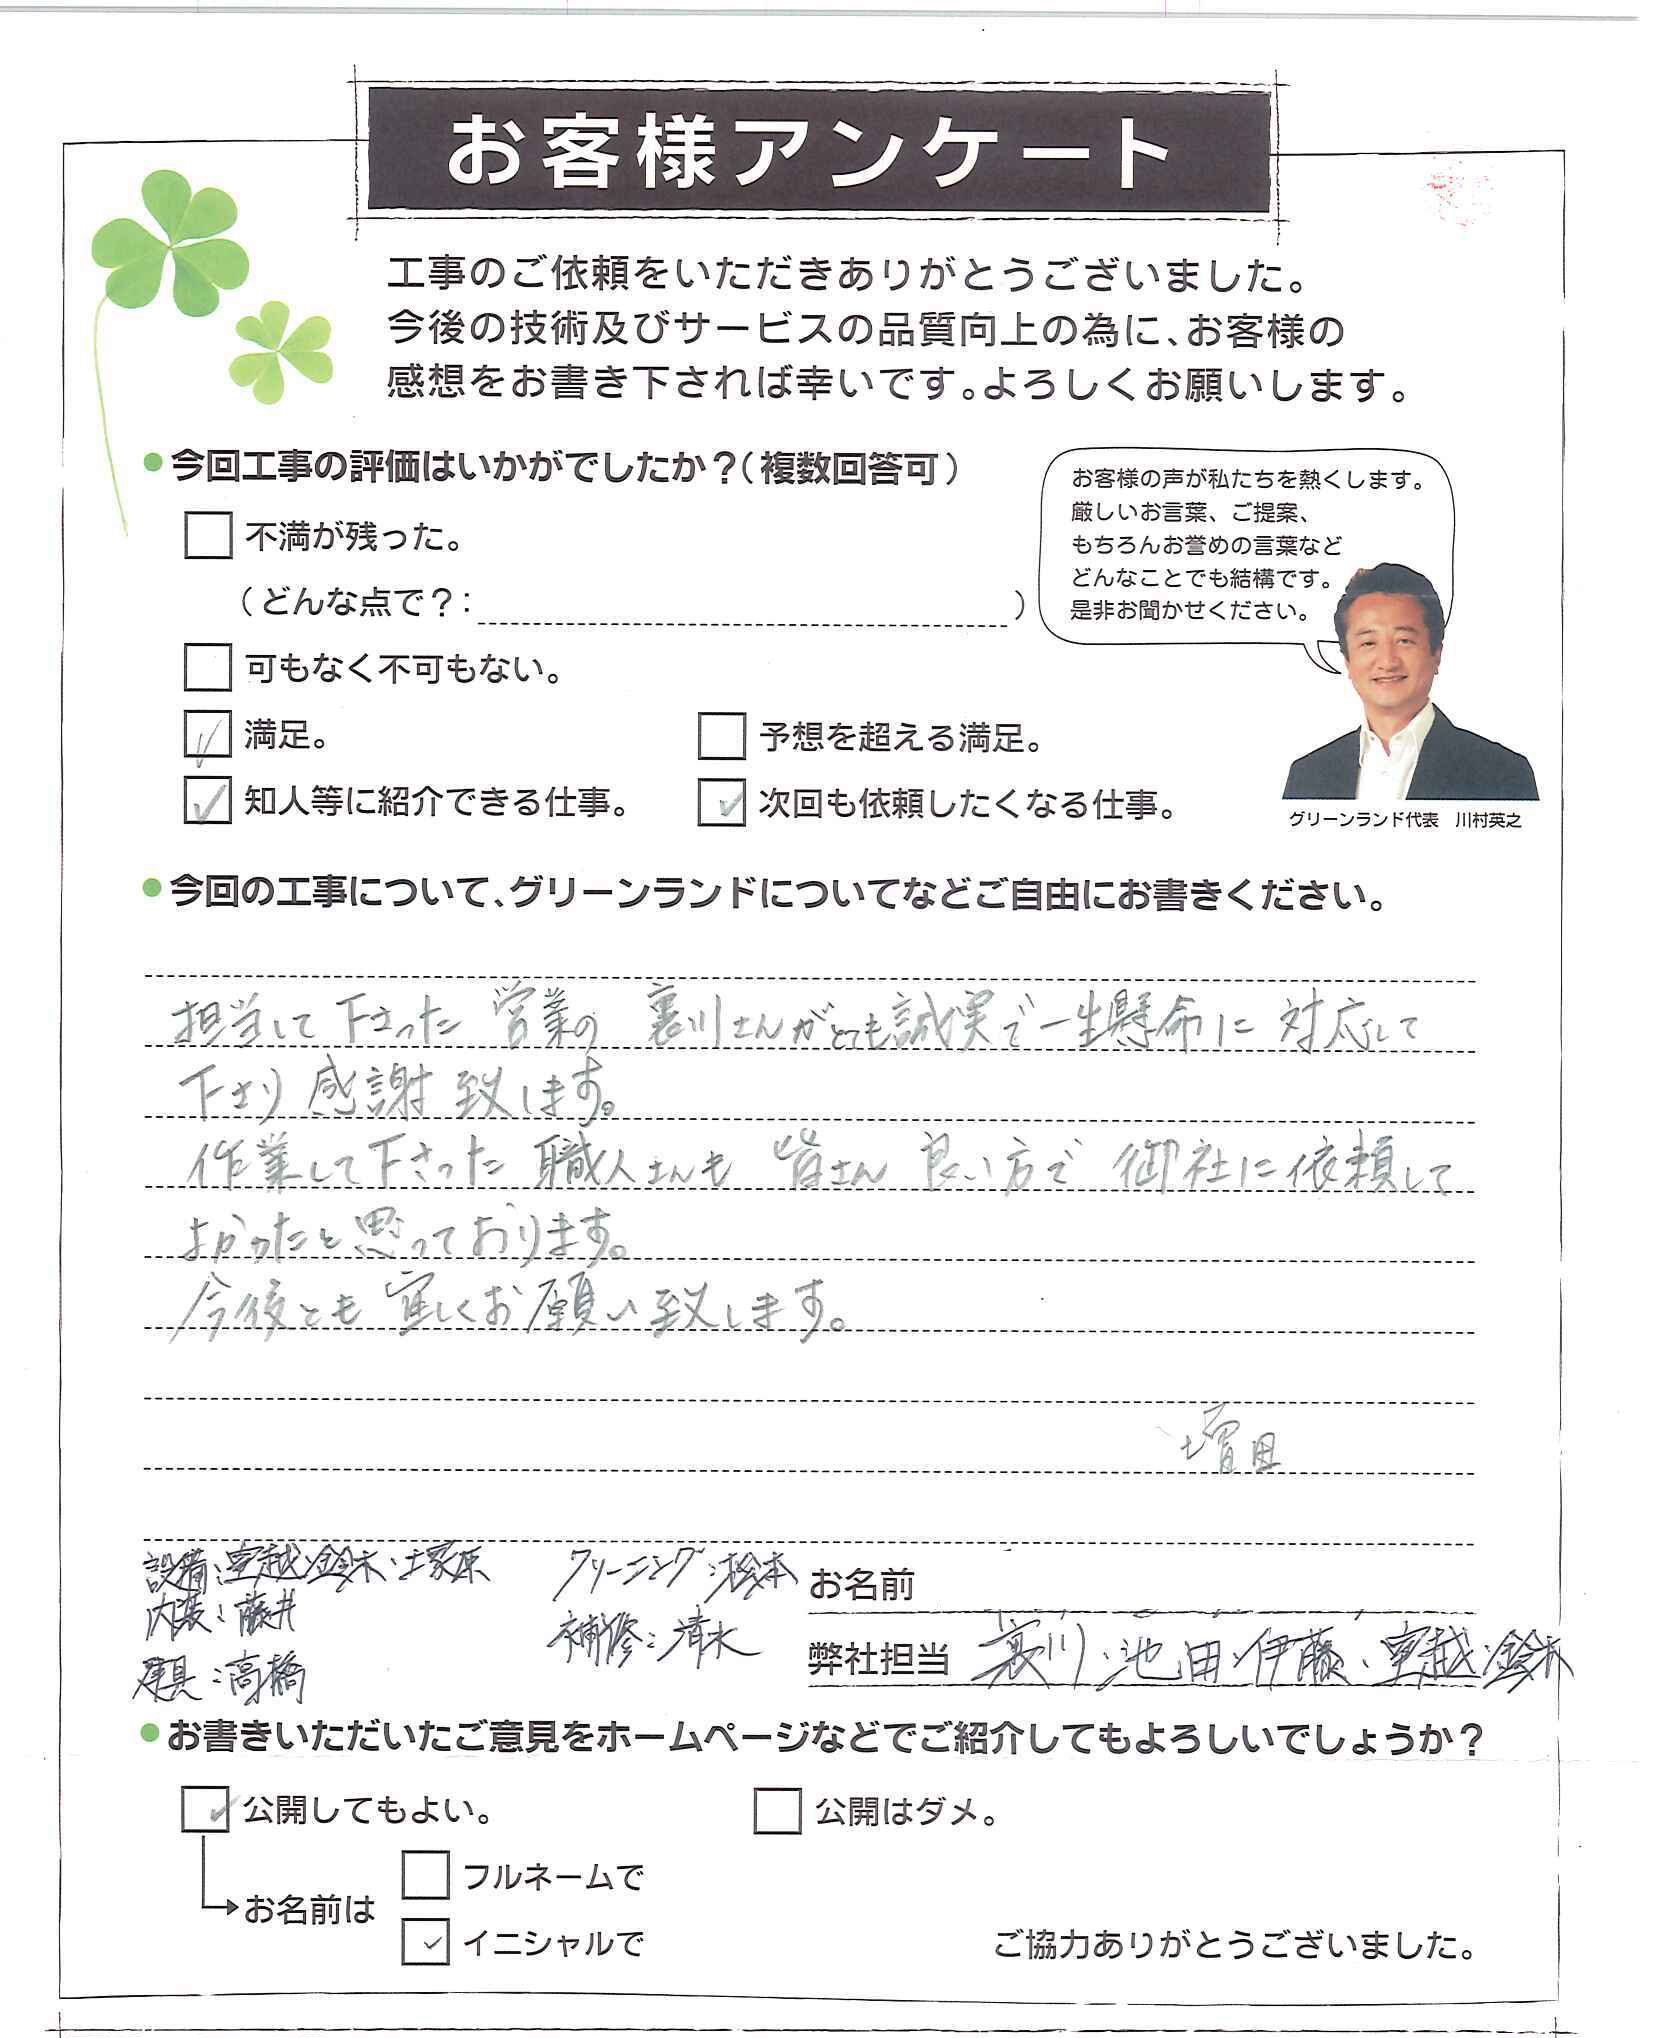 お客様アンケート
工事のご依頼をいただきありがとうございました。
今後の技術及びサービスの品質向上の為に、お客様の
感想をお書き下されば幸いです。よろしくお願いします。
今回工事の評価はいかがでしたか?(複数回答可)
お客様の声が私たちを熱くします。
厳しいお言葉、ご提案、
もちろんお誉めの言葉など
どんなことでも結構です。
是非お聞かせください。
不満が残った。
(どんな点で?: )
可もなく不可もない。
満足。 予想を超える満足。
知人等に紹介できる仕事。 次回も依頼したくなる仕事。
グリーンランド代表 川村英之
今回の工事について、グリーンランドについてなどご自由にお書きください。
担当して下さった 営業の 裏川さんがとても誠実で一生懸命に 対応して
下さり 感謝致します。
作業して下さった 職人さんも 皆さん 良い方で 御社に依頼して
よかったと思っております。
今後とも 宜しくお願い致します。
増田
設備:室越・鈴木・土塚原 クリーニング:松本 お名前
内装:藤井 補修:清水
弊社担当 裏川・池田・伊藤・室越・鈴木
建具:高橋
お書きいただいたご意見をホームページなどでご紹介してもよろしいでしょうか?
公開してもよい。 公開はダメ。
フルネームで
お名前は
イニシャルで ご協力ありがとうございました。